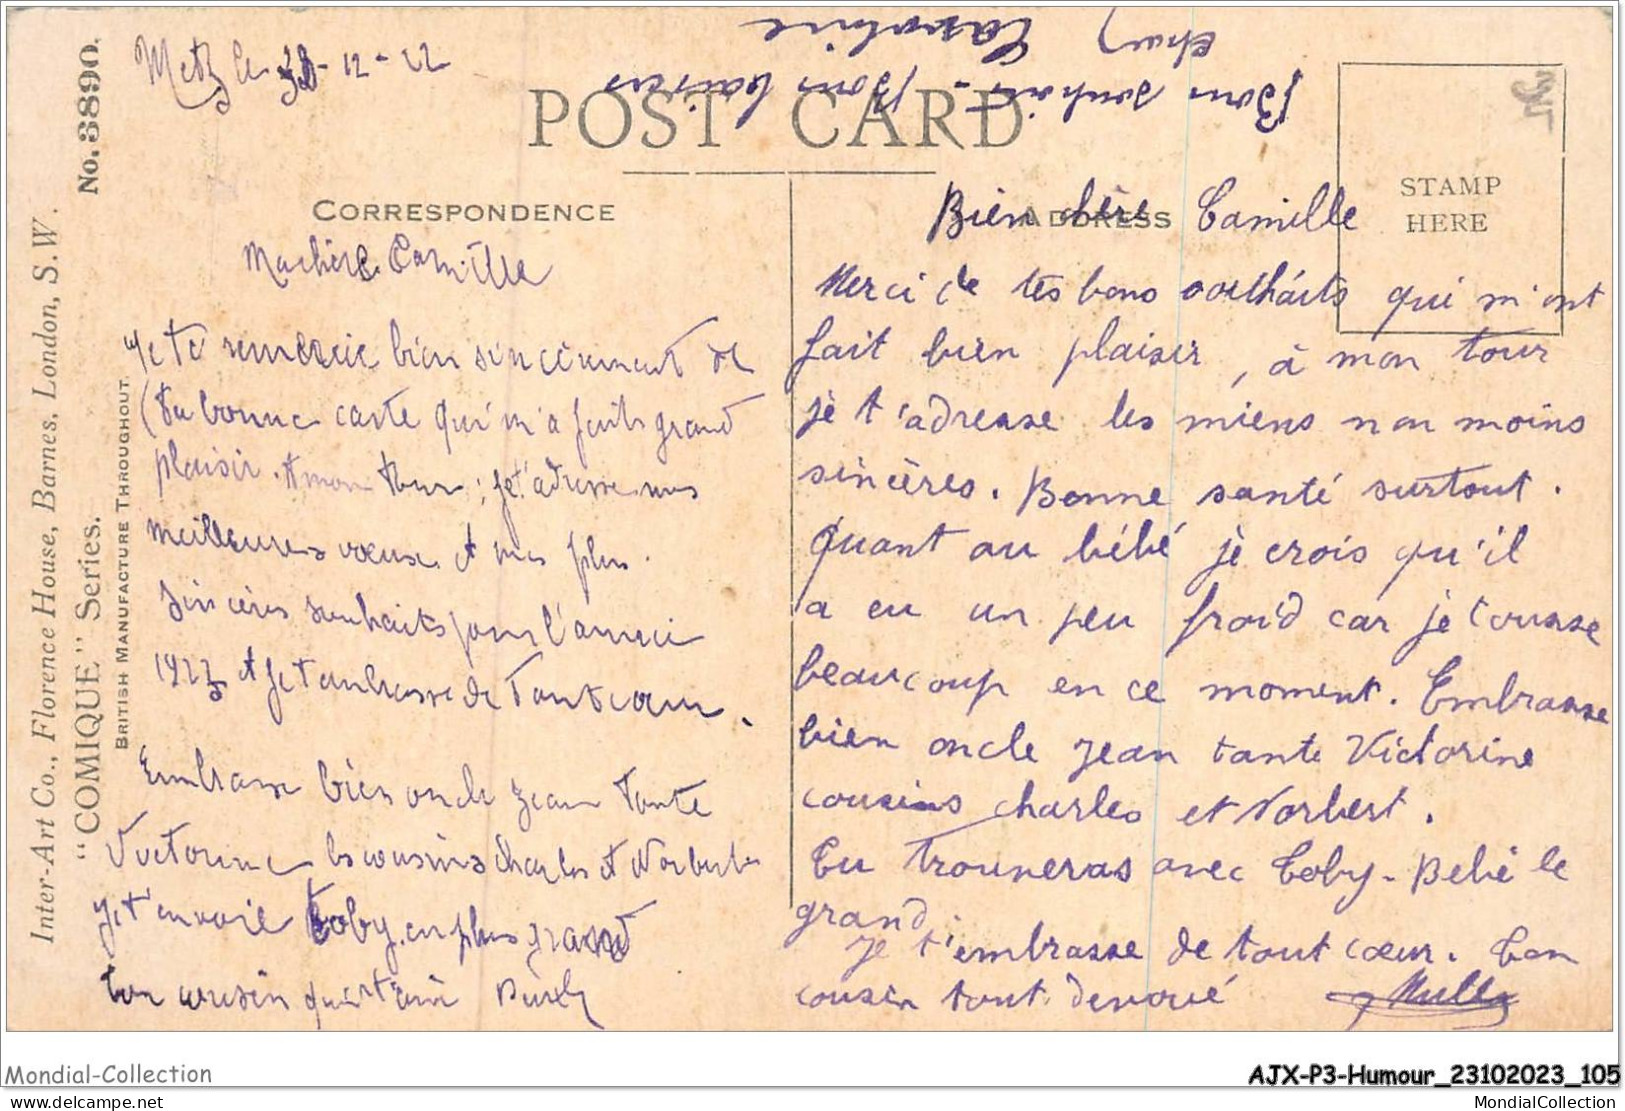 Metz le -12-22
Bons souhaits - Bons baisers
No. 3890.
POST CARD
CORRESPONDENCE
ADDRESS
STAMP
HERE
Inter-Art Co., Florence House, Barnes, London, S.W.
"COMIQUE" Series.
BRITISH MANUFACTURE THROUGHOUT.
Ma chère Camille
Je te remercie bien sincèrement de
ta bonne carte qui m'a fait grand
plaisir. A mon tour; je t'adresse mes
meilleures voeux et mes plus
sincères souhaits pour l'année
1923 et je t'embrasse de Tout coeur.
Embrasse bien oncle Jean Tante
Victorine les cousins Charles et Norbert
Je t'envoie Toby en plus grand
Ton cousin qui t'aime
Bien chère Camille
Merci de tes bons souhaits qui m'ont
fait bien plaisir, à mon tour
je t'adresse les miens non moins
sincères. Bonne santé surtout.
Quant au bébé je crois qu'il
a eu un peu froid car je tousse
beaucoup en ce moment. Embrasse
bien oncle Jean tante Victorine
cousins Charles et Norbert.
Tu trouveras avec Toby - Bébé le
grand
Je t'embrasse de tout coeur. Ton
cousin tout devoué
Mondial-Collection
AJX-P3-Humour_23102023_105
www.delcampe.net
MondialCollection